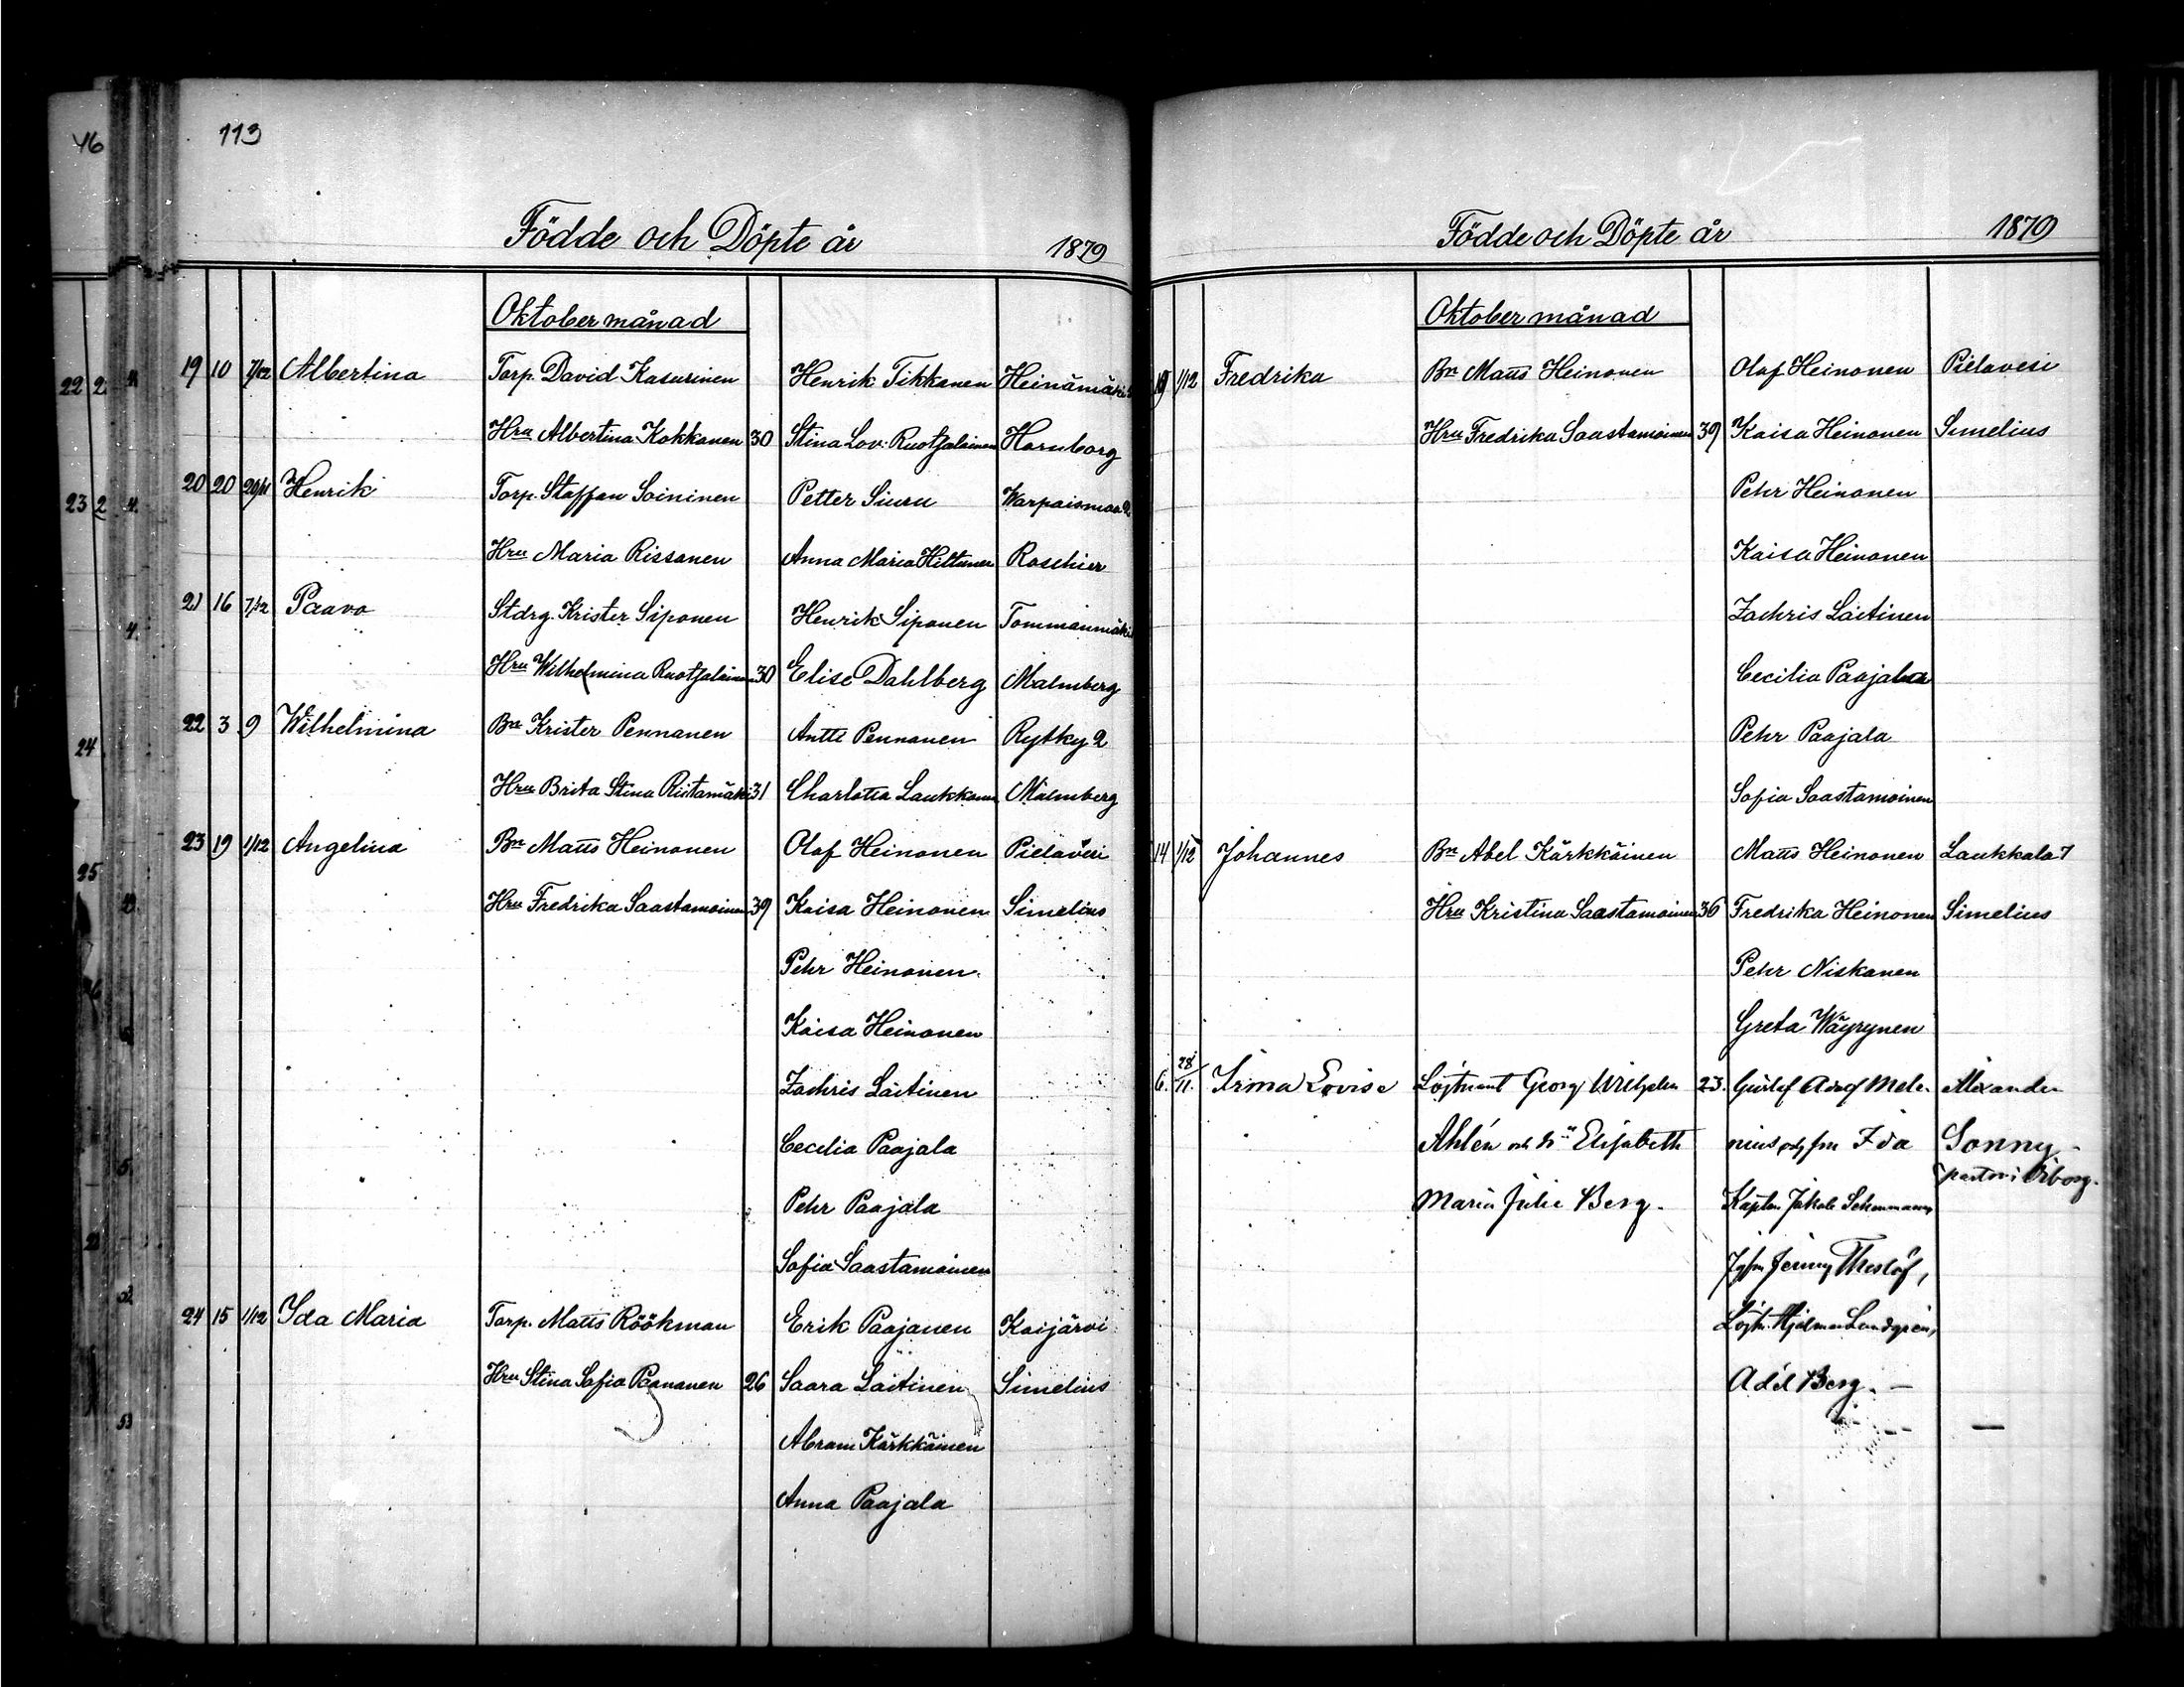 46
113
Födde och Döpte år 1879
Oktober månad
19 10 7/12 Albertina Torp. David Kasurinen Henrik Tikkanen Heinämäki
Hru Albertina Kokkonen 30 Stina Lov. Ruotsalainen Hornborg
20 20 29/11 Henrik Torp. Staffan Soininen Petter Siuru Warpaismaa 2
Hru Maria Rissanen Anna Maria Hiltunen Roschier
21 16 7/12 Paavo Stdrg. Krister Siponen Henrik Siponen Tommanmäki
Hru Wilhelmina Ruotsalainen 30 Elise Dahlberg Malmberg
22 3 9 Wilhelmina Bn Krister Pennanen Antti Pennanen Rytky 2
Hru Brita Stina Riitamäki 31 Charlotta Laukkanen Malmberg
23 19 1/12 Angelina Bn Matts Heinonen Olof Heinonen Pielavesi
Hru Fredrika Saastamoinen 39 Kaisa Heinonen Simelius
Pehr Heinonen
Kaisa Heinonen
Zachris Laitinen
Cecilia Paajala
Pehr Paajala
Sofia Saastamoinen
24 15 1/12 Ida Maria Torp. Matts Röökman Erik Paajanen Koijärvi
Hru Stina Sofia Paananen 26 Saara Laitinen Simelius
Abram Kärkkäinen
Anna Paajala
Födde och Döpte år 1879
Oktober månad
19 1/12 Fredrika Bn Matts Heinonen Olof Heinonen Pielavesi
Hru Fredrika Saastamoinen 39 Kaisa Heinonen Simelius
Pehr Heinonen
Kaisa Heinonen
Zachris Laitinen
Cecilia Paajala
Pehr Paajala
Sofia Saastamoinen
14 1/12 Johannes Bn Abel Kärkkäinen Matts Heinonen Laukkala 7
Hru Kristina Saastamoinen 36 Fredrika Heinonen Simelius
Pehr Niskanen
Greta Wäyrynen
6. 28/11. Irma Lovise Löjtnant Georg Wilhelm 23. Gustaf Adolf Mele- Alexander
Ahlén och hu Elisabeth nius och fru Ida Sonny
pastor i Wiborg.
Maria Julie Berg. Kapten Jakob
Jenny Theslöf,
Löjtn. Hjalmar Lundgren,
Adèl Berg. —